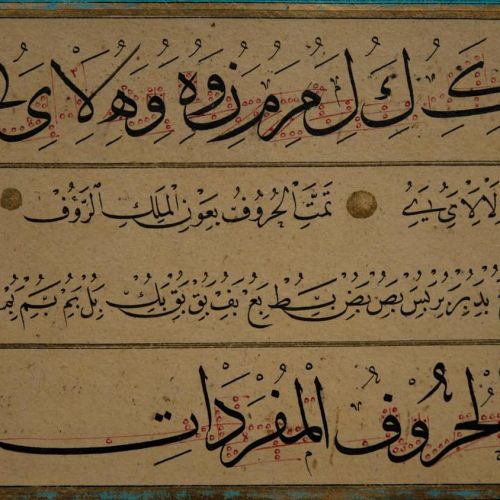 ك ك ل م ر م ز و ه و ه لا ي
لا لا ي ے تَمَّتِ الْحُرُوفُ بِعَوْنِ الْمَلِكِ الرَّؤُفِ
بد بر بس بص بط بع بف بق بك بل بم بم
الحُرُوفُ الْمُفْرَدَاتِ